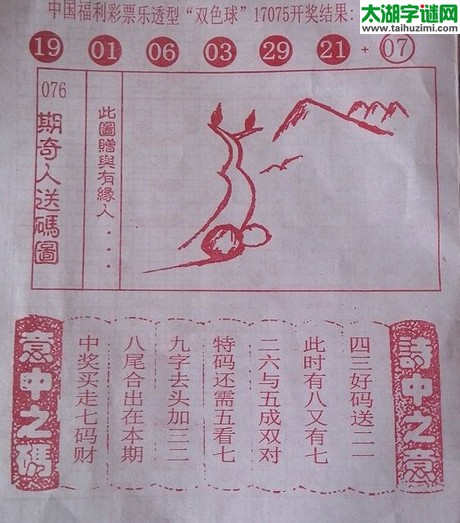 中国福利彩票乐透型“双色球”17075开奖结果：
太湖字谜网
www.taihuzimi.com
19 01 06 03 29 21 + 07
076
期奇人送碼圖
此圖贈與有緣人...
詩中之意
四三好码送二一
此时有八又有七
二六与五成双对
特码还需五看七
九字去头加三二
八尾合出在本期
中奖买走七码财
意中之碼